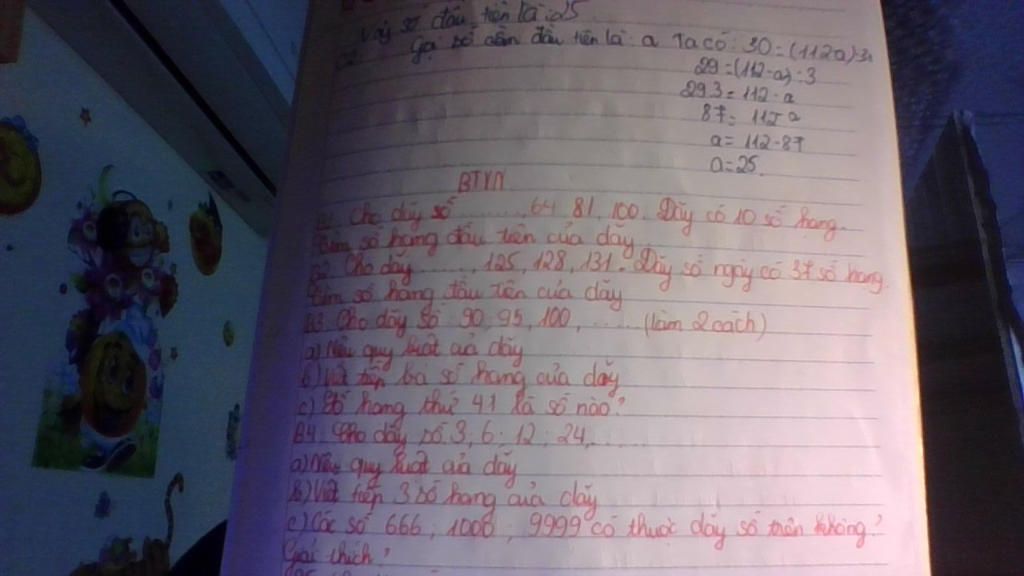 Vậy số đầu tiên là 25
Gọi số cần đầu tiên là a Ta có: 30 = (112a):3
29 = (112-a):3
29.3 = 112-a
87 = 112-a
a = 112-87
a = 25.
BTVN
B1. Cho dãy số ......., 64, 81, 100. Dãy có 10 số hạng.
Tìm số hạng đầu tiên của dãy
B2. Cho dãy ......, 125, 128, 131. Dãy số ngày có 37 số hạng.
Tìm số hạng đầu tiên của dãy
B3. Cho dãy số: 90, 95, 100, ....... (làm 2 cách)
a) Nêu quy luật của dãy
b) Viết tiếp ba số hạng của dãy
c) Số hạng thứ 41 là số nào?
B4. Cho dãy số 3, 6; 12; 24, ......
a) Nêu quy luật của dãy
b) Viết tiếp 3 số hạng của dãy
c) Các số 666; 1000; 9999 có thuộc dãy số trên không?
Giải thích?